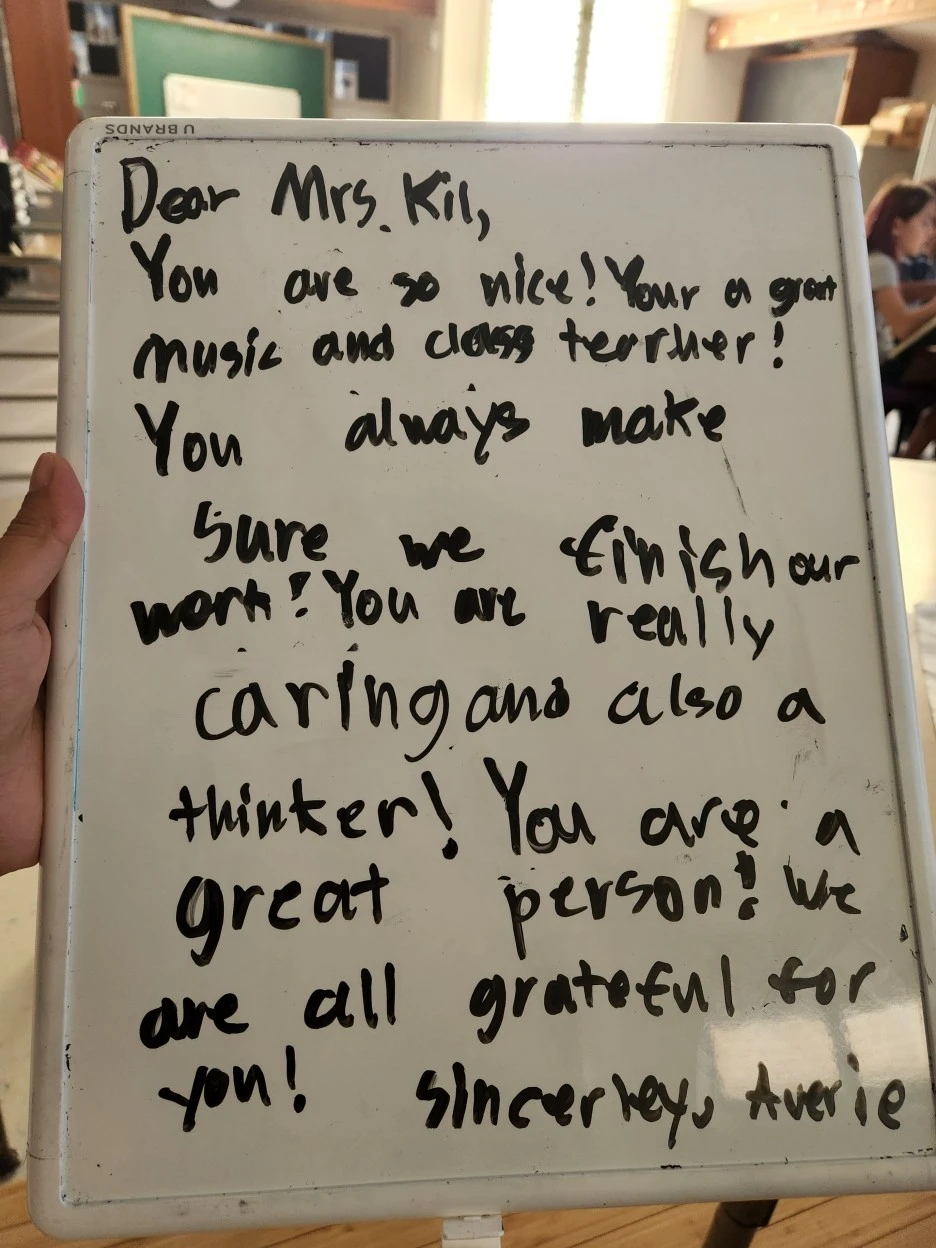 U BRANDS
Dear Mrs. Kil,
You are so nice! Your a great
music and class tearher!
You always make
Sure we finish our
work! You are really
caring and also a
thinker! You are a
great person! We
are all grateful for
you! Sincerley, Averie